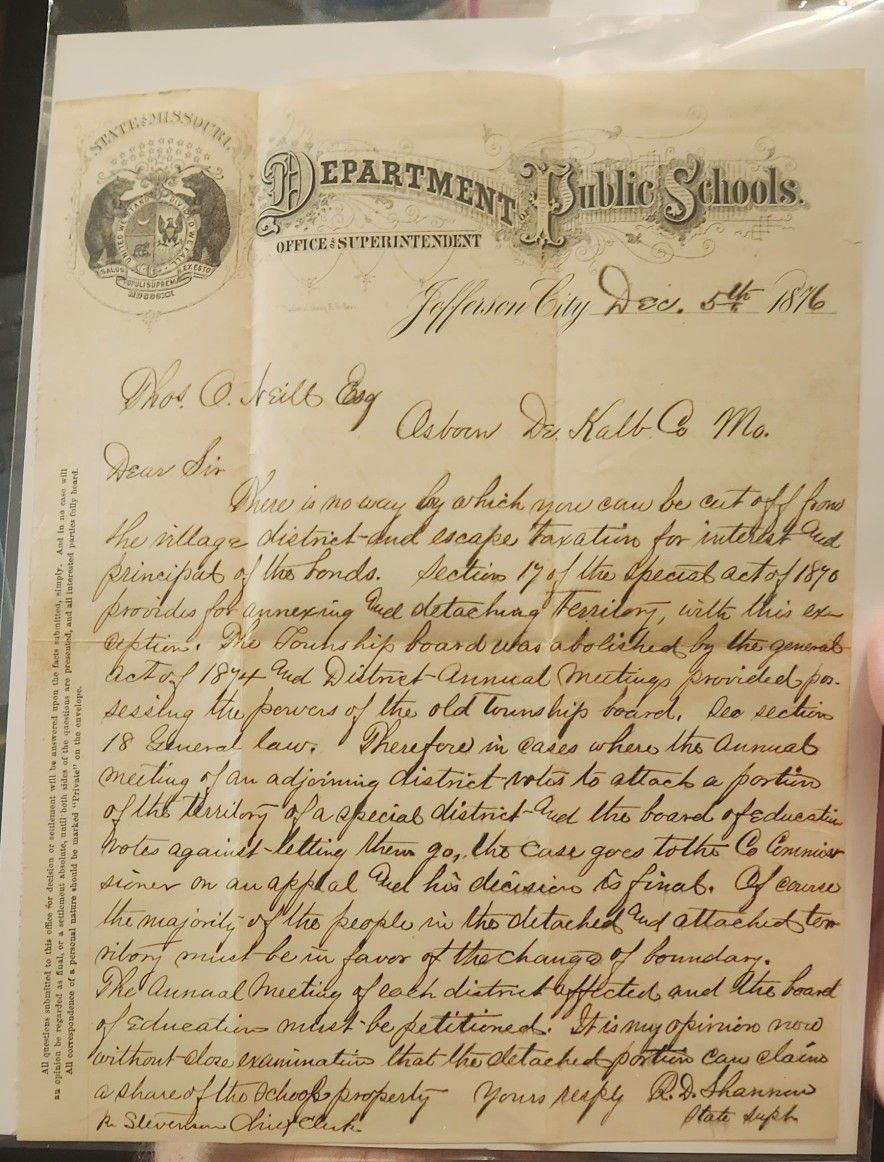 STATE OF MISSOURI.
UNITED WE STAND DIVIDED WE FALL
SALUS POPULI SUPREMA LEX ESTO
MDCCCXX
DEPARTMENT OF Public Schools.
OFFICE OF SUPERINTENDENT
Jefferson City Dec. 5th 1876
Thos. O. Neill Esq
Osborn De. Kalb. Co Mo.
Dear Sir
There is no way by which you can be cut off from
the village district and escape taxation for interest and
principal of the bonds. Section 17 of the special act of 1870
provides for annexing and detaching Territory, with this ex-
ception. The Township board was abolished by the general
act of 1874 and District Annual Meetings provided pos-
sessing the powers of the old township board. See section
18 General law. Therefore in cases where the Annual
meeting of an adjoining district votes to attach a portion
of the territory of a special district and the board of Education
votes against letting them go, the case goes to the Co Commis-
sioner on an appeal and his decision is final. Of course
the majority of the people in the detached and attached ter-
ritory must be in favor of the change of boundary.
The Annual Meeting of each district affected and the board
of Education must be petitioned. It is my opinion now
without close examination that the detached portion can claim
a share of the school property Yours resply R. D. Shannon
State Supt.
Stevenson Chief Clerk
All questions submitted to this office for decision or settlement will be answered upon the facts submitted, simply. And in no case will
an opinion be regarded as final, or a settlement absolute, until both sides of the questions are presented, and all interested parties fully heard.
All correspondence of a personal nature should be marked "Private" on the envelope.